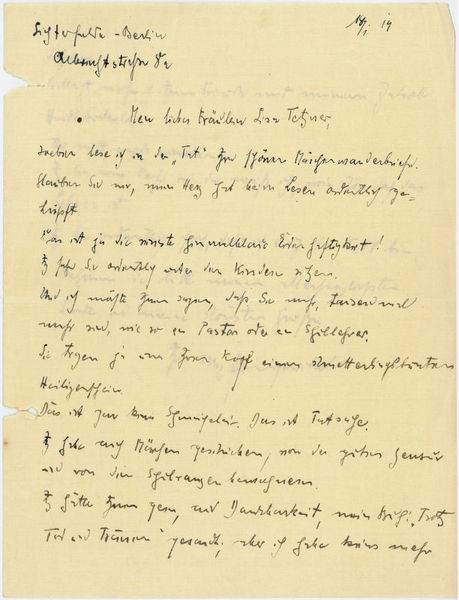 Lichterfelde-Berlin 14
Albrechtstrasse 8a
Mein liebes Fräulein Lisa Tetzner,
soeben lese ich in der „Tat" Ihre schönen Märchenwanderbriefe.
Glauben Sie mir, mein Herz hat beim Lesen ordentlich ge-
hüpft.
Das ist ja die
Ich sehe Sie ordentlich unter den Kindern sitzen.
Und ich möchte Ihnen sagen, dass Sie mehr, tausendmal
mehr sind, wie so ein Pastor oder ein Schullehrer.
Sie tragen ja um Ihren Kopf einen schmetterlingsbunten
Heiligenschein.
Das ist gar keine Schmeichelei. Das ist Tatsache.
Ich habe auch Märchen geschrieben, von der
und von den
Ich hätte Ihnen gern, aus Dankbarkeit, mein Buch: „Trotz
Tod und Tränen" gesandt, aber ich habe keins mehr